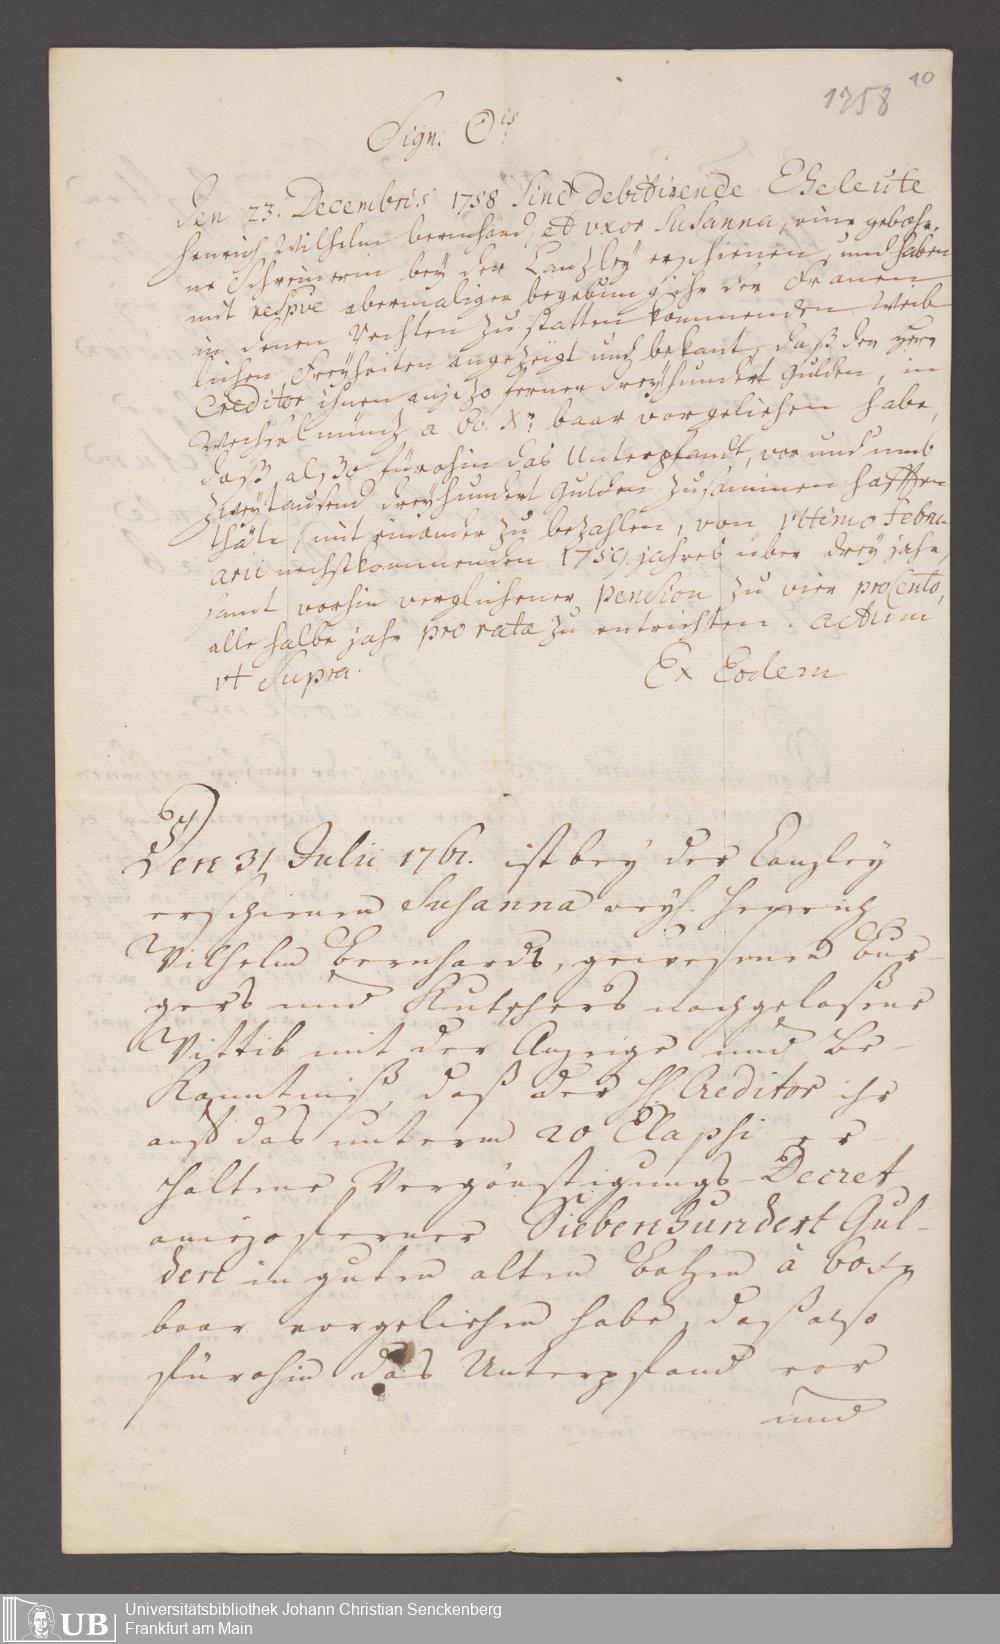 10
1758
Sign. O is
Den 23. Decembris 1758 sind debitirende Eheleute
Henrich Wilhelm bernhard, et vxor Susanna, eine gebohr-
ne Schreinerin bey der Canzley erschienen, und haben
mit respve abermaliger begebung ihr der Frauen
in denen Rechten zu statten kommenden Weib-
lichen Freyheiten angezeigt und bekant, daß der Herr
Creditor ihnen anjezo ferner dreyhundert Gulden, in
Wechselmünz a 60. Xr baar vorgeliehen habe,
daß alßo fürohin das Unterpfandt, vor und umb
zweytausend dreyhundert Gulden zusammen hafften
thäte, mit einander zu bezahlen, von vltimo Febru-
arii nechstkommenden 1759. jahres über drey jahr,
samt vorhin verglichener pension zu vier proCento,
alle halbe jahr pro rata zu entrichten. actum
vt Supra.
Ex Eodem
Den 31 Julii 1761. ist bey der Canzley
erschienen Susanna weyl. Henrich
Wilhelm Bernhards, gewesenen Bur-
gers und Kutschers nachgelaßene
Wittib mit der Anzeige und Be-
kanntniß, daß der H Creditor ihr
auf das unterm 20 Elapsi er-
haltene Vergönstigungs-Decret
anjezo ferner Siebenhundert Gul-
den in guten alten Batzen à 60 xr
baar vorgeliehen habe, daß also
fürohin das Unterpfand vor
und
UB
Universitätsbibliothek Johann Christian Senckenberg
Frankfurt am Main